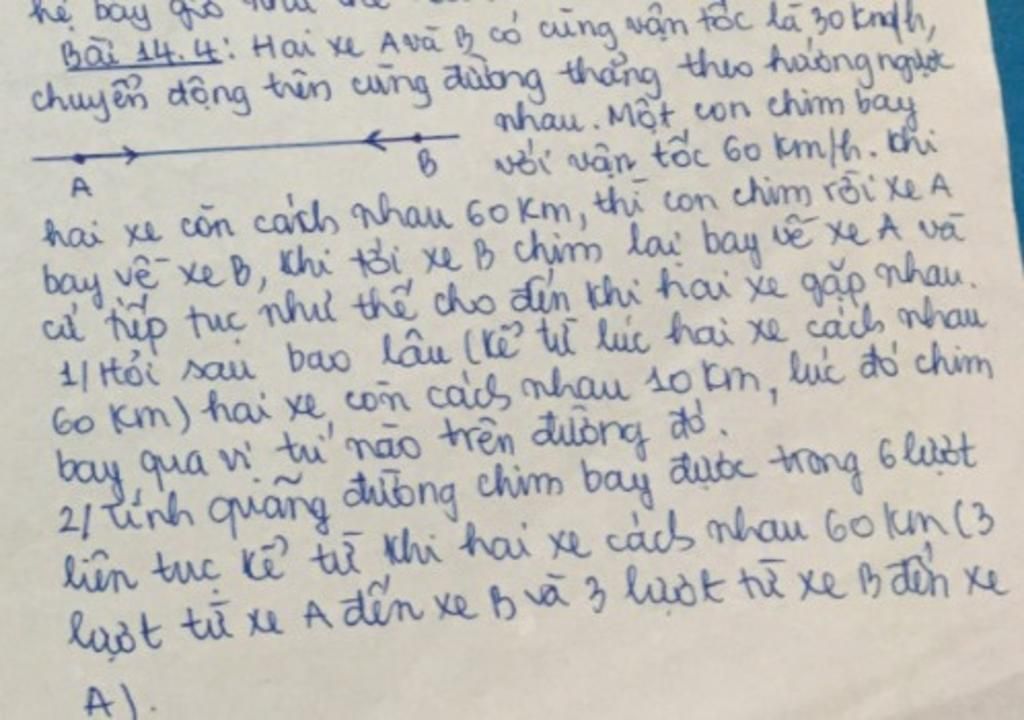 hệ bay giờ như thế
Bài 14.4: Hai xe A và B có cùng vận tốc là 30 km/h,
chuyển động trên cùng đường thẳng theo hướng ngược
nhau. Một con chim bay
với vận tốc 60 km/h. Khi
A
B
hai xe còn cách nhau 60 km, thì con chim rời xe A
bay về xe B, khi tới xe B chim lại bay về xe A và
cứ tiếp tục như thế cho đến khi hai xe gặp nhau.
1/ Hỏi sau bao lâu (kể từ lúc hai xe cách nhau
60 km) hai xe còn cách nhau 10 km, lúc đó chim
bay qua vị trí nào trên đường đó.
2/ Tính quãng đường chim bay được trong 6 lượt
liên tục kể từ khi hai xe cách nhau 60 km (3
lượt từ xe A đến xe B và 3 lượt từ xe B đến xe
A).